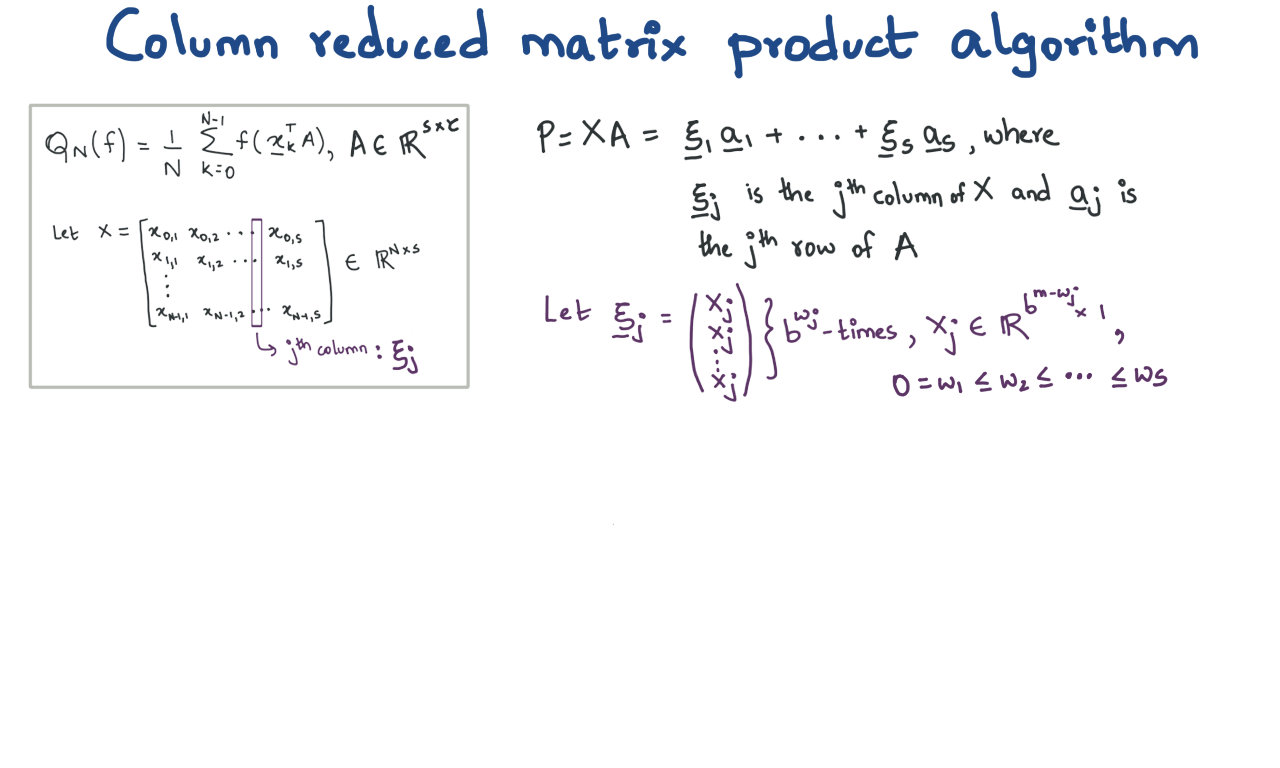 Column reduced matrix product algorithm
Q_N(f) = 1/N Σ_{k=0}^{N-1} f(x_k^T A), A ∈ ℝ^{s×τ}
Let X = [x_{0,1} x_{0,2} ... x_{0,s}
x_{1,1} x_{1,2} ... x_{1,s}
⋮
x_{N-1,1} x_{N-1,2} ... x_{N-1,s}] ∈ ℝ^{N×s}
↳ jth column : ξ_j
P = XA = ξ_1 a_1 + ... + ξ_s a_s, where
ξ_j is the jth column of X and a_j is
the jth row of A
Let ξ_j = (X_j X_j ⋮ X_j) } b^{w_j}-times, X_j ∈ ℝ^{b^{m-w_j} × 1},
0 = w_1 ≤ w_2 ≤ ... ≤ w_s